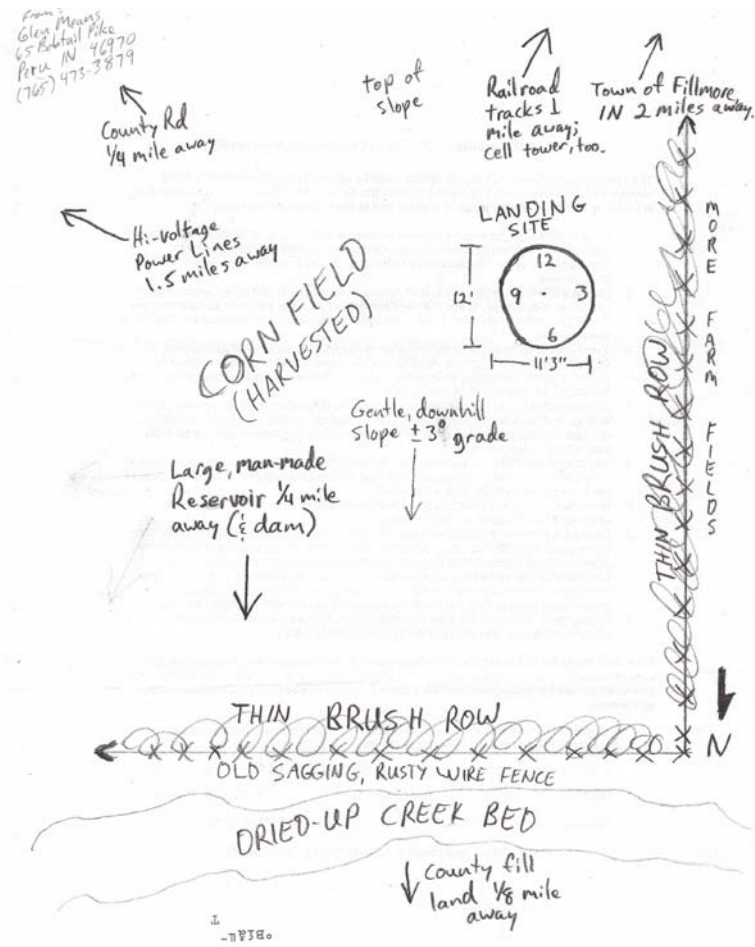 From:
Glen Means
65 Bobtail Pike
Peru IN 46970
(765) 473-3879
County Rd
1/4 mile away
top of
slope
Railroad
tracks 1
mile away;
cell tower, too.
Town of Fillmore,
IN 2 miles away.
Hi-voltage
Power Lines
1.5 miles away
CORN FIELD
(HARVESTED)
LANDING
SITE
12
9 3
6
12'
11'3"
MORE FARM FIELDS
THIN BRUSH ROW
Gentle, downhill
slope ±3° grade
Large, man-made
Reservoir 1/4 mile
away (& dam)
N
THIN BRUSH ROW
OLD SAGGING, RUSTY WIRE FENCE
DRIED-UP CREEK BED
County fill
land 1/8 mile
away